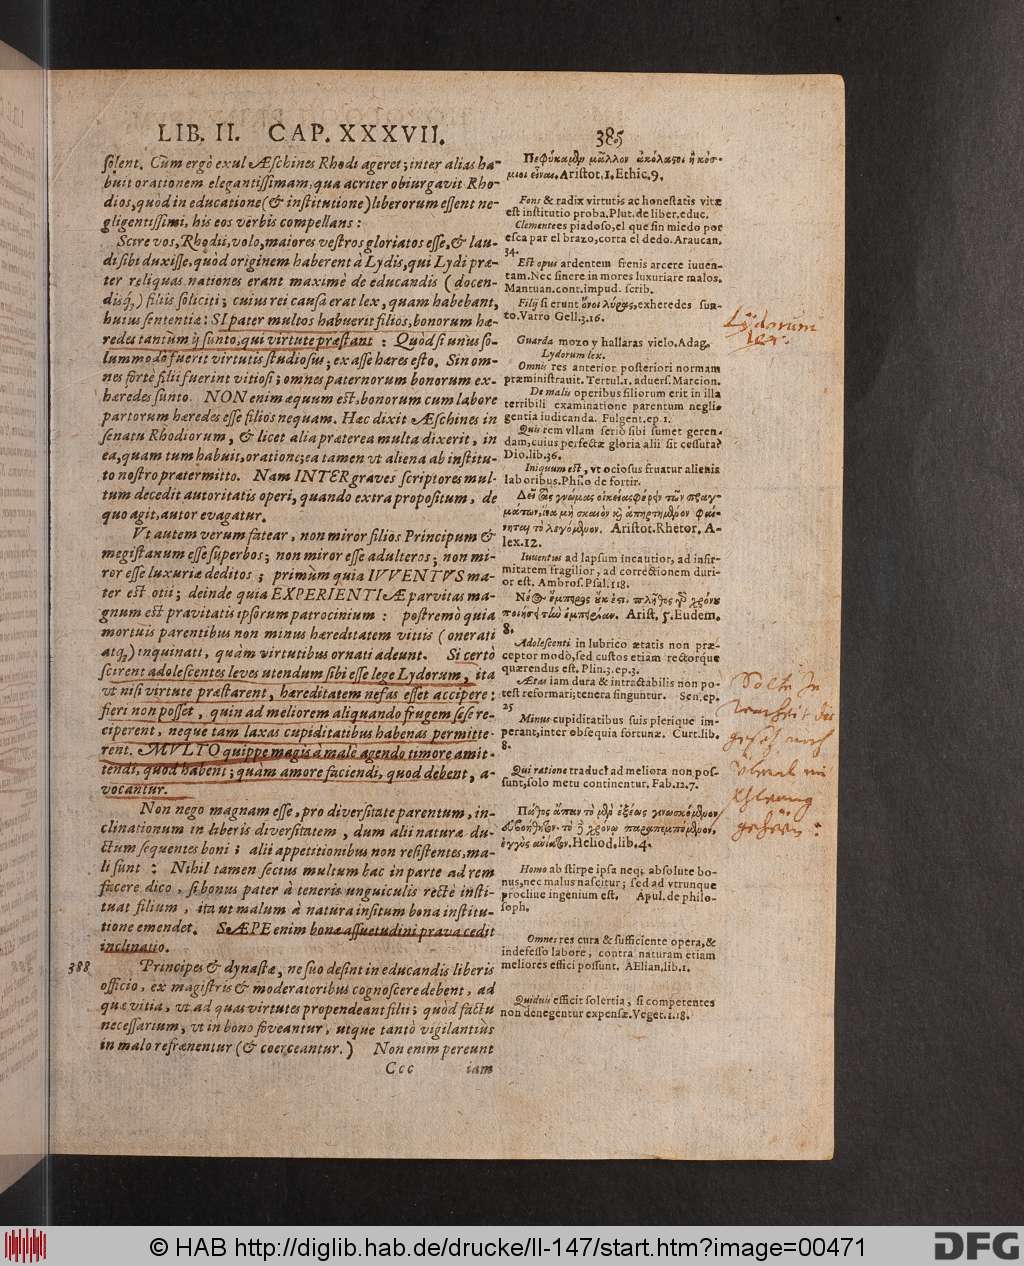 LIB. II. CAP. XXXVII. 385
solent. Cùm ergò exul Æschines Rhodi ageret; inter alias ha-
buit orationem elegantissimam, qua acriter obiurgavit Rho-
dios, quòd in educatione (& institutione) liberorum essent ne-
gligentissimi, his eos verbis compellans:
Scire vos, Rhodii, volo, maiores vestros gloriatos esse, & lau-
di sibi duxisse, quòd originem haberent à Lydis, qui Lydi præ-
ter reliquas nationes erant maximè de educandis (docen-
disq́,) filiis soliciti; cuius rei causâ erat lex, quam habebant,
huius sententiæ: SI pater multos habuerit filios, bonorum hæ-
redes tantùm ij sunto, qui virtute præstant: Quòd si unus so-
lummodo fuerit virtutis studiosus; ex asse hæres esto. Sin om-
nes fortè filii fuerint vitiosi; omnes paternorum bonorum ex-
hæredes sunto. NON enim æquum est, bonorum cum labore
partorum hæredes esse filios nequam. Hæc dixit Æschines in
senatu Rhodiorum, & licet alia præterea multa dixerit, in
ea, quam tum habuit, oratione; ea tamen vt aliena ab institu-
to nostro prætermitto. Nam INTER graves scriptores mul-
tum decedit autoritatis operi, quando extra propositum, de
quo agit, autor evagatur.
Vt autem verum fatear, non miror filios Principum &
megistanum esse superbos; non miror esse adulteros; non mi-
ror esse luxuriæ deditos; primùm quia IVVENTVS ma-
ter est otii; deinde quia EXPERIENTIÆ parvitas ma-
gnum est pravitatis ipsorum patrocinium: postremò quia
mortuis parentibus non minus hæreditatem vitiis (onerati
atq́;) inquinati, quàm virtutibus ornati adeunt. Si certò
scirent adolescentes leves utendum sibi esse lege Lydorum, ita
ut nisi virtute præstarent, hæreditatem nefas esset accipere:
fieri non posset, quin ad meliorem aliquando frugem sese re-
ciperent, neque tam laxas cupiditatibus habenas permitte-
rent. MVLTO quippe magis à male agendo timore amit-
tendi, quod habent; quàm amore faciendi, quod debent, a-
vocantur.
Non nego magnam esse, pro diversitate parentum, in-
clinationum in liberis diversitatem, dum alii naturæ du-
ctum sequentes boni; alii appetitionibus non resistentes, ma-
li sunt: Nihil tamen secius multum hac in parte ad rem
facere dico, si bonus pater à teneris unguiculis rectè insti-
tuat filium, ita ut malum à natura insitum bona institu-
tione emendet. SÆPE enim bonæ assuetudini prava cedit
inclinatio.
388 Principes & dynastæ, ne suo desint in educandis liberis
officio, ex magistris & moderatoribus cognoscere debent, ad
quæ vitia, vt ad quas virtutes propendeant filii; quòd factu
necessarium, vt in bono foveantur, utque tantò vigilantiùs
in malo refrænentur (& coerceantur.) Non enim pereunt
Ccc iam
Πεφύκαμεν μᾶλλον ἀκόλαστοι ἢ κόσ-
μιοι εἶναι. Aristot. 1. Ethic. 9.
Fons & radix virtutis ac honestatis vitæ
est institutio proba. Plut. de liber. educ.
Clemente es piadoso, el que sin miedo por
esca par el brazo, corta el dedo. Araucan.
34.
Est opus ardentem frenis arcere iuuen-
tam. Nec sinere in mores luxuriare malos.
Mantuan. cont. impud. scrib.
Filij si erunt ὄνοι λύρας, exheredes sun-
to. Varro Gell. 3. 16.
Guarda mozo y hallaras vielo. Adag.
Lydorum lex.
Omnis res anterior posteriori normam
præministrauit. Tertul. 1. aduers. Marcion.
De malis operibus filiorum erit in illa
terribili examinatione parentum negli-
gentia iudicanda. Fulgent. ep. 1.
Quis rem vllam seriò sibi sumet geren-
dam, cuius perfectæ gloria alii sit cessura?
Dio. lib. 36.
Iniquum est, vt ociosus fruatur alienis
laboribus. Philo de fortir.
Δεῖ τὰς γνώμας οἰκείας φέρειν τῶν πραγ-
μάτων, ἵνα μὴ σκαιὸν καὶ ἀπηρτημένον φαί-
νηται τὸ λεγόμενον. Aristot. Rhetor. A-
lex. 12.
Iuuentus ad lapsum incautior, ad infir-
mitatem fragilior, ad correctionem duri-
or est. Ambros. Psal. 118.
Νέος ἔμπειρος οὐκ ἔστι. πλῆθος γὰρ χρόνου
ποιήσει τὴν ἐμπειρίαν. Arist. 5. Eudem.
8.
Adolescenti in lubrico ætatis non præ-
ceptor modò, sed custos etiam rectorque
quærendus est. Plin. 3. ep. 3.
Ætas iam dura & intractabilis non po-
test reformari; tenera finguntur. Sen. ep.
25
Minus cupiditatibus suis plerique im-
perant, inter obsequia fortunæ. Curt. lib.
8.
Qui ratione traduci ad meliora non pos-
sunt, solo metu continentur. Fab. 12. 7.
Πάθος ἅπαν τὸ μὲν ὀξέως γινωσκόμενον
εὐβοήθητον· τὸ δὲ χρόνῳ παραπεμπόμενον,
ἐγγὺς ἀνίατον. Heliod. lib. 4.
Homo ab stirpe ipsa neqꝫ absolutè bo-
nus, nec malus nascitur; sed ad vtrunque
procliue ingenium est. Apul. de philo-
soph.
Omnes res cura & sufficiente opera, &
indefesso labore, contra naturam etiam
meliores effici possunt. AElian. lib. 1.
Quiduis efficit solertia, si competentes
non denegentur expensæ. Veget. 1. 18.
Lÿdorum
lex.
Solte in
warheit das
gesetz noch
© HAB http://diglib.hab.de/drucke/ll-147/start.htm?image=00471
DFG